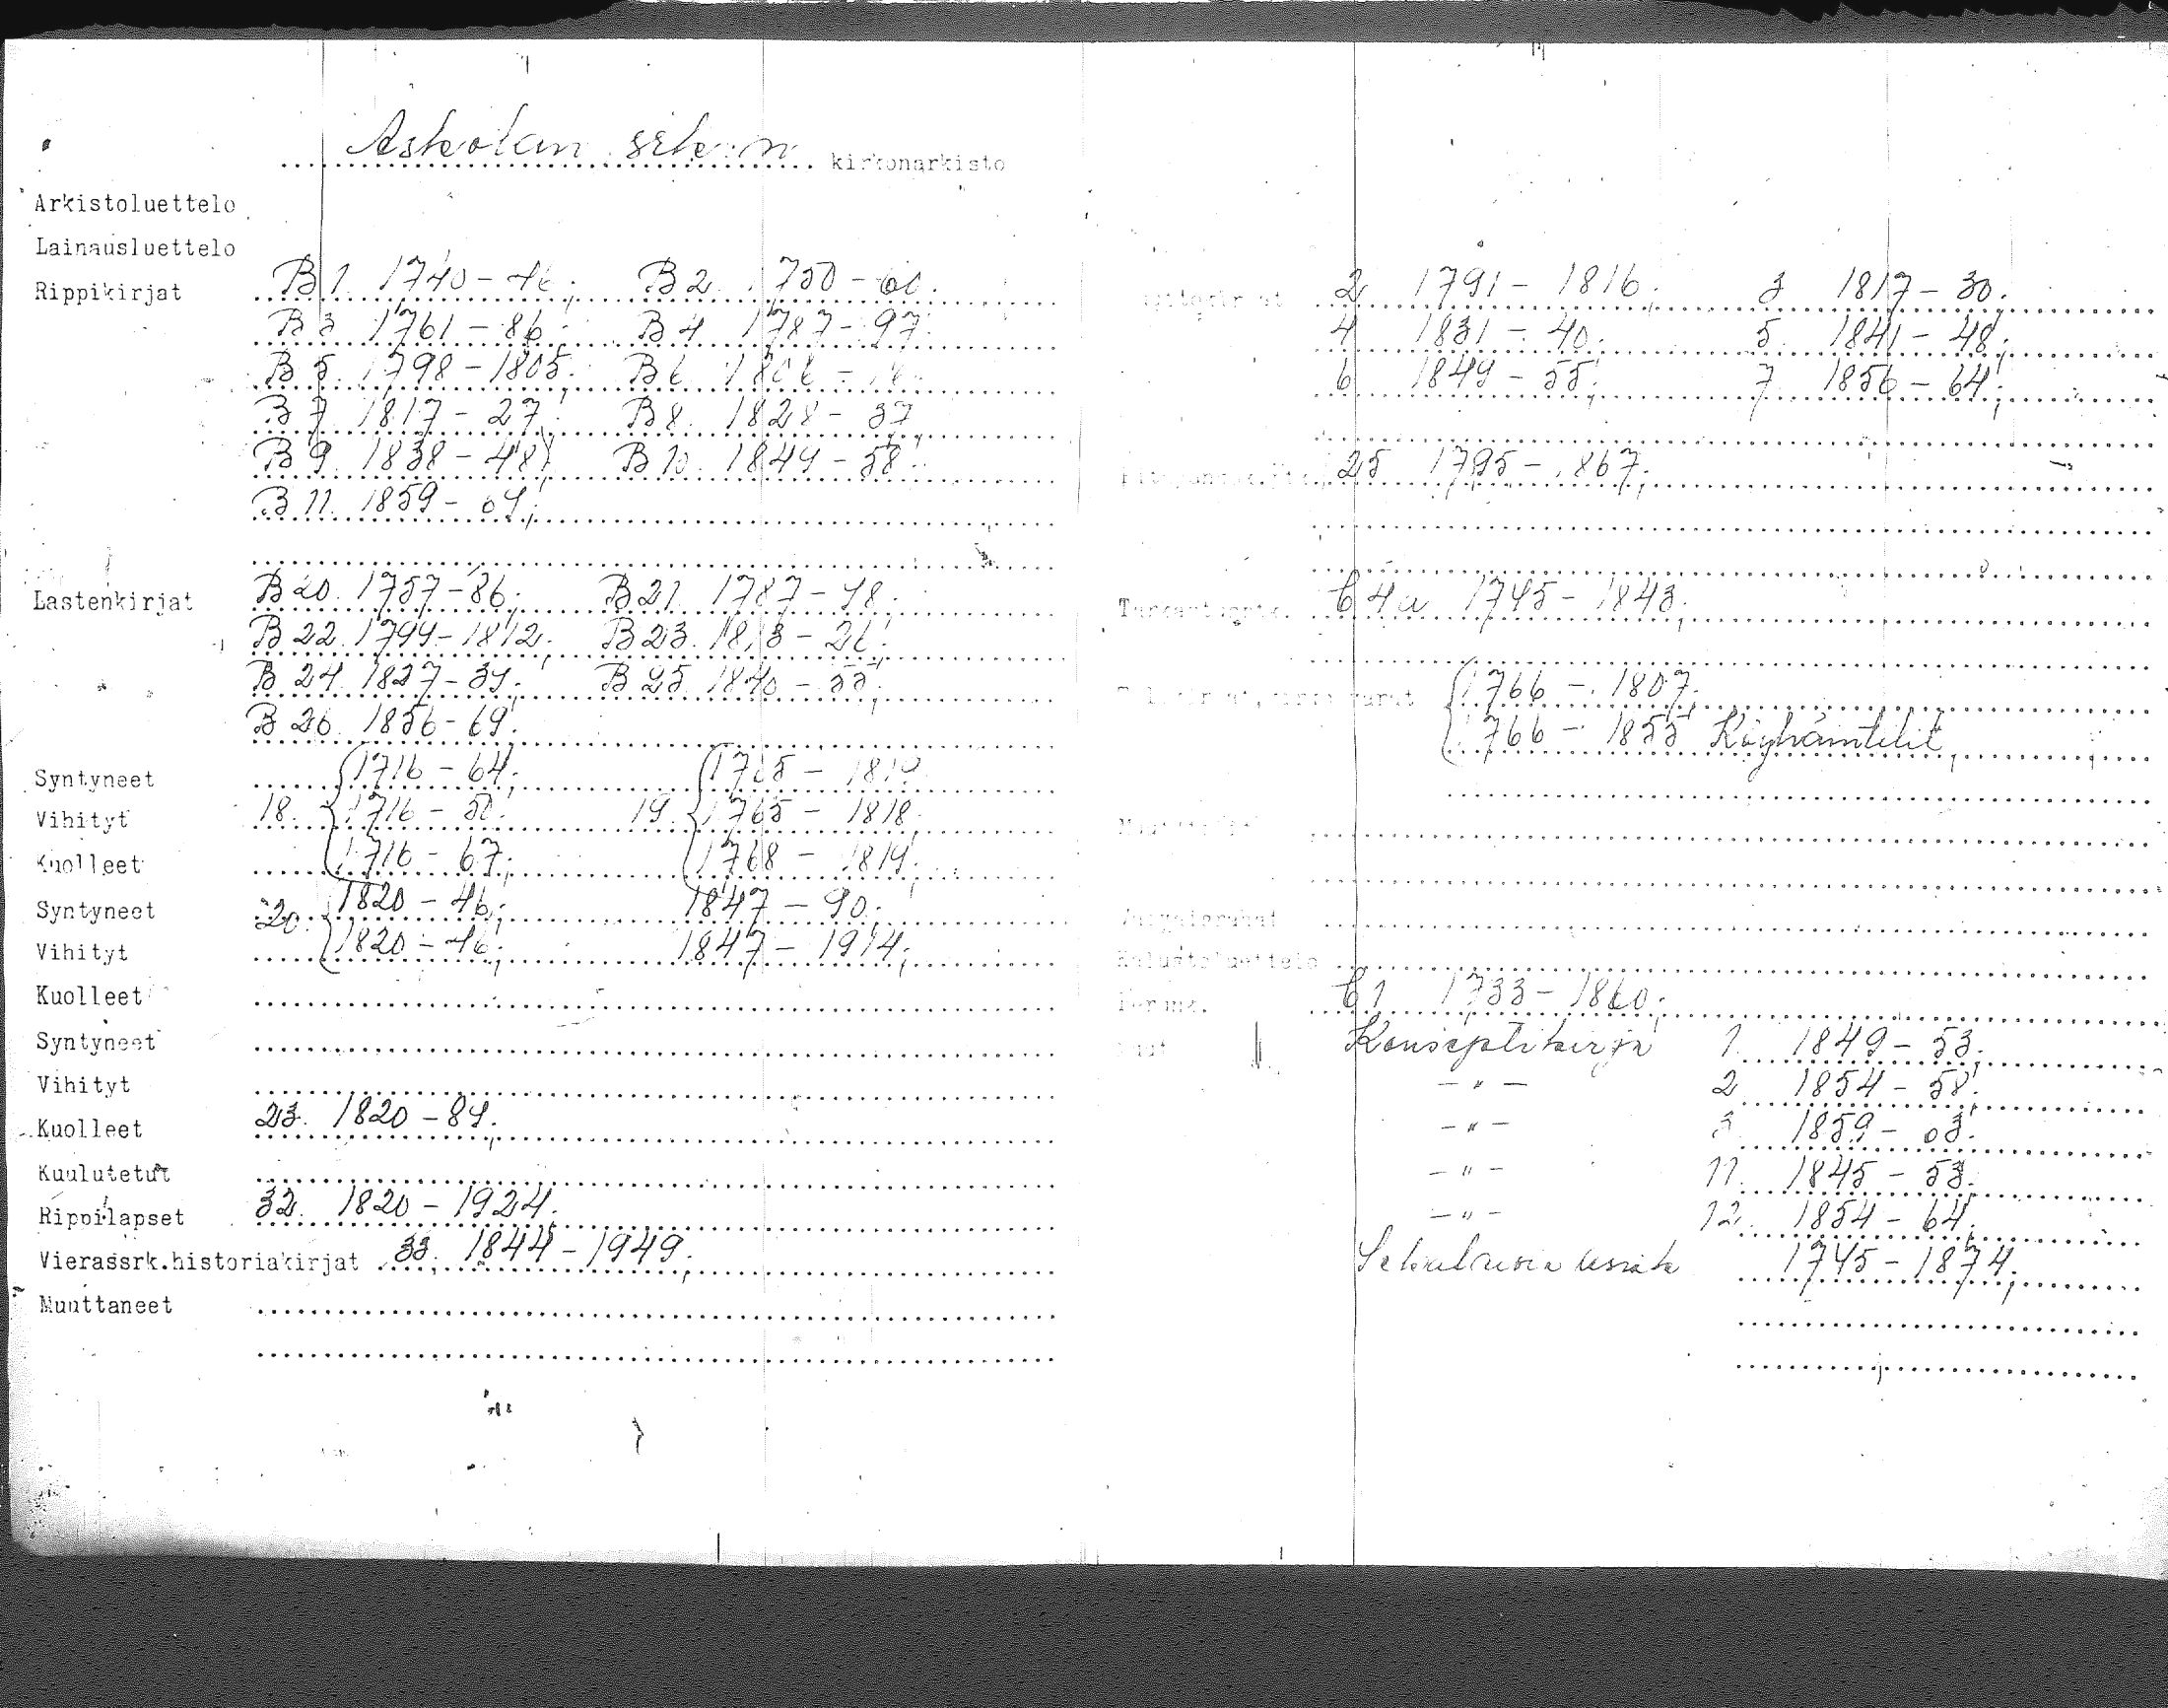 Askolan srk:n kirkonarkisto
Arkistoluettelo
Lainausluettelo
Rippikirjat B 1. 1740-46; B 2. 1750-60.
B 3 1761-86; B 4. 1787-97.
B 5. 1798-1805. B 6. 1806-
B 7 1817-27. B 8. 1828-37
B 9. 1838-48; B 10. 1849-58.
B 11. 1859-69;
Lastenkirjat B 20. 1757-86; B 21. 1787-98.
B 22. 1799-1812; B 23. 1813-26.
B 24. 1827-39; B 25. 1840-55;
B 26. 1856-69.
Syntyneet 1716-64; 1765-1819
Vihityt 18. 1716-50. 19. 1765-1818
Kuolleet 1716-67; 1768-1819
Syntyneet 20. 1820-46; 1847-90.
Vihityt 1820-46; 1847-1914;
Kuolleet
Syntyneet
Vihityt
Kuolleet 23. 1820-89.
Kuulutetut
Rippilapset 32. 1820-1924.
Vierassrk.historiakirjat 33. 1844-1949.
Muuttaneet
2 1791-1816; 3 1817-30.
4 1831-40; 5. 1841-48;
6 1849-55; 7 1856-64;
25 1795-1867;
C 4 a 1745-1843;
1766-1807;
1766-1855 Köyhäintilit,
Kalustoluettelo
C 1 1733-1860;
Konseptikirja 1. 1849-53.
-"- 2 1854-58.
-"- 3 1859-63.
-"- 11. 1845-53.
-"- 12. 1854-64.
Sekalaisia asiak 1745-1874;